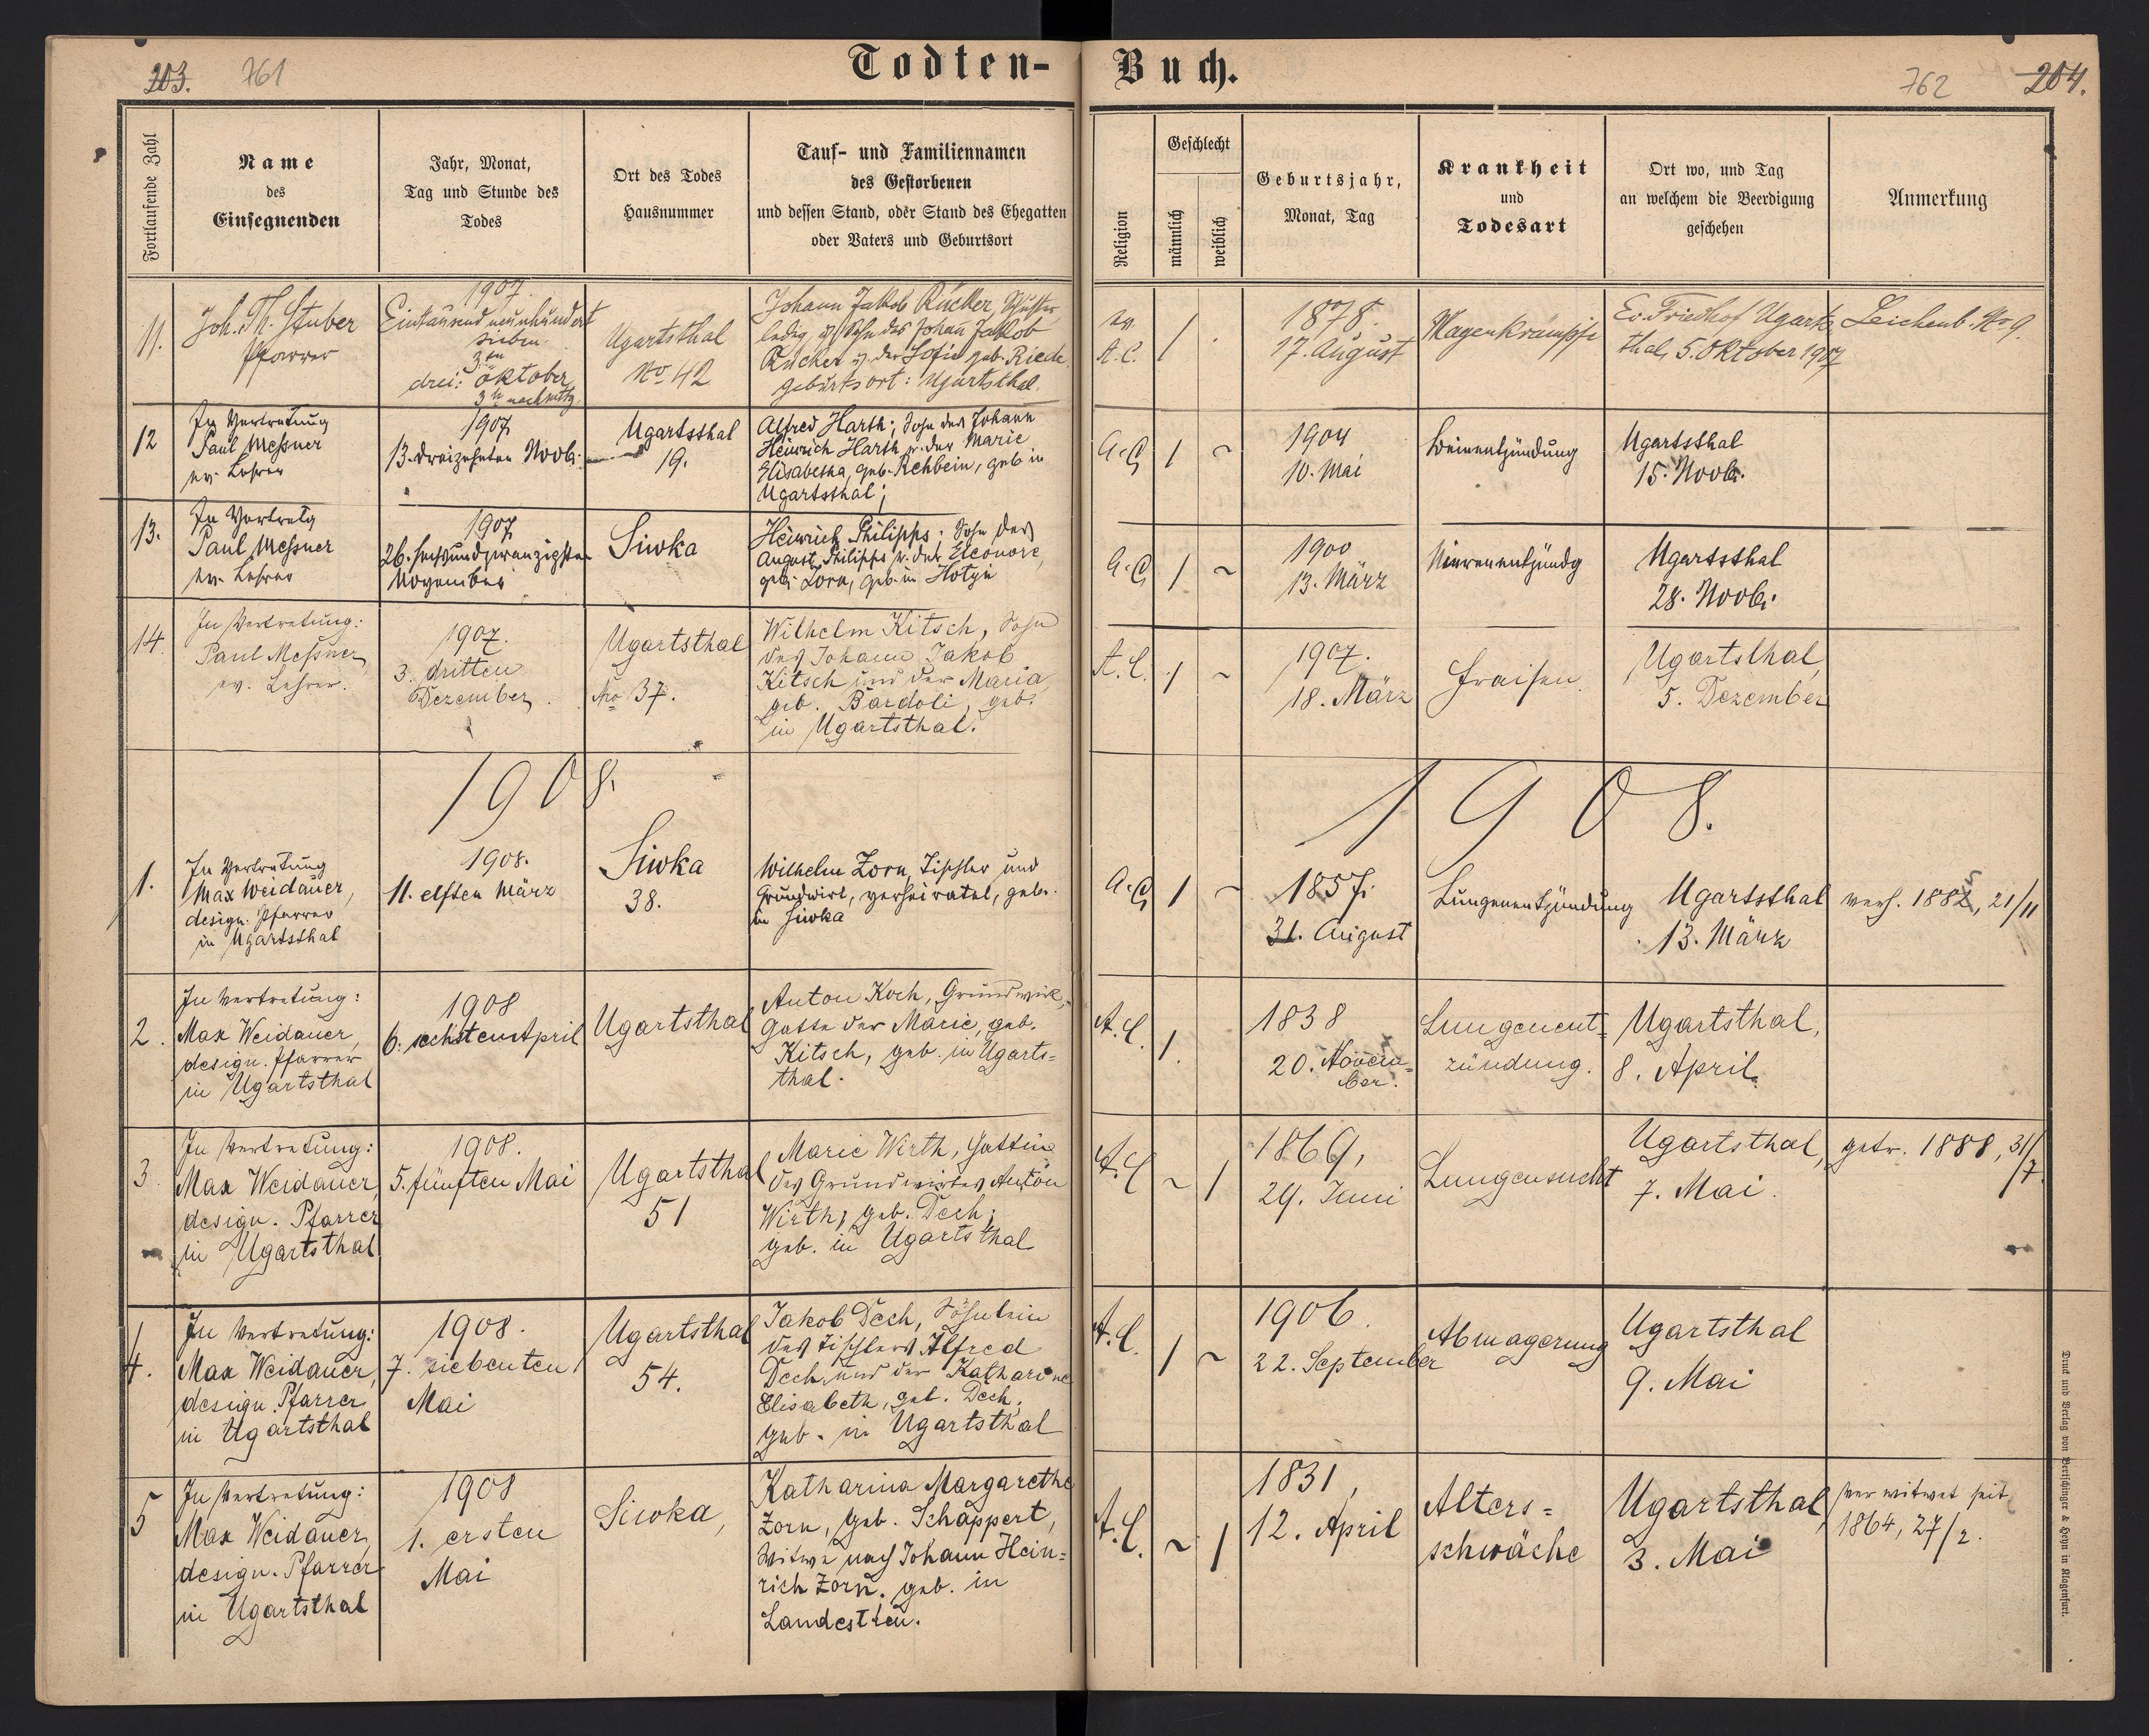 203. 761
Todten-
Fortlaufende Zahl
Name
des
Einsegnenden
Jahr, Monat,
Tag und Stunde des
Todes
Ort des Todes
Hausnummer
Tauf- und Familiennamen
des Gestorbenen
und dessen Stand, oder Stand des Ehegatten
oder Vaters und Geburtsort
Buch.
762 204.
Religion
Geschlecht
männlich
weiblich
Geburtsjahr,
Monat, Tag
Krankheit
und
Todesart
Ort wo, und Tag
an welchem die Beerdigung
geschehen
Anmerkung
11.
Joh. Th. Stuber
Pfarrer
1907.
Eintausend neunhundert
sieben
3ten
drei: Oktober
3 h nachmittg.
Ugartsthal
No 42
Johann Jakob Rücker,
ledig Sohn des Johann Jakob
Rücker u. der Sofia geb. Riech
Geburtsort: Ugartsthal.
ev.
A.C.
1
1878.
17. August
Magenkrämpfe
Ev. Friedhof Ugarts-
thal, 5. Oktober 1907
Leichenb. No 9.
12
In Vertretung
Paul Meßner
ev. Lehrer
1907
13. dreizehnten Novb.
Ugartsthal
19.
Alfred Harth; Sohn des Johann
Heinrich Harth u. der Marie
Elisabetha, geb. Rehbein, geb. in
Ugartsthal;
A.C.
1 ~
1904
10. Mai
Ugartsthal
15. Novb.
13.
In Vertretg
Paul Meßner
ev. Lehrer
1907
26. sechsundzwanzigsten
November
Siwka
Heinrich Philipps; Sohn des
August Philipps u. der Eleonore,
geb. Zorn, geb. in Hotyn
A.C.
1 ~
1900
13. März
Nierenentzündg
Ugartsthal
28. Novb.
14.
In Vertretung:
Paul Meßner,
ev. Lehrer.
1907.
3. dritten
Dezember.
Ugartsthal
No 37.
Wilhelm Kitsch, Sohn
des Johann Jakob
Kitsch und der Maria,
geb. Bardoli, geb.
in Ugartsthal.
A.C.
1 ~
1907.
18. März
Fraisen.
Ugartsthal,
5. Dezember
1908.
1908.
1.
In Vertretung
Max Weidauer,
design. Pfarrer
in Ugartsthal
1908.
11. elften März
Siwka
38.
Wilhelm Zorn, Tischler und
Grundwirt, verheiratet, geb.
in Siwka
A.C.
1 ~
1857.
31. August
Lungenentzündung
Ugartsthal
13. März
verh. 1885, 21/11
2.
In Vertretung:
Max Weidauer,
design. Pfarrer
in Ugartsthal
1908
6. sechsten April
Ugartsthal
Anton Koch, Grundwirt,
Gatte der Marie, geb.
Kitsch, geb. in Ugarts=
thal.
A.C.
1.
1838
20. Novem=
ber.
Lungenent=
zündung.
Ugartsthal,
8. April.
3.
In Vertretung:
Max Weidauer,
design. Pfarrer
in Ugartsthal
1908.
5. fünften Mai
Ugartsthal
51
Marie Wirth, Gattin
des Grundwirtes Anton
Wirth, geb. Dech;
geb. in Ugartsthal
A.C.
~ 1
1869,
29. Juni
Lungensucht
Ugartsthal,
7. Mai.
getr. 1888, 31/
7.
4.
In Vertretung:
Max Weidauer,
design. Pfarrer
in Ugartsthal
1908.
7. siebenten
Mai
Ugartsthal
54.
Jakob Dech, Söhnlein
des Tischlers Alfred
Dech und der Katharine
Elisabeth, geb. Dech;
geb. in Ugartsthal
A.C.
1 ~
1906.
22. September
Abmagerung
Ugartsthal
9. Mai
5
In Vertretung:
Max Weidauer,
design. Pfarrer
in Ugartsthal
1908
1. ersten
Mai
Siwka,
Katharina Margarethe
Zorn, geb. Schappert,
Witwe nach Johann Hein=
rich Zorn, geb. in
Landestreu.
A.C.
~ 1
1831,
12. April
Alters=
schwäche
Ugartsthal,
3. Mai
verwitwet seit
1864, 27/2.
Druck und Verlag von Bertschinger & Heyn in Klagenfurt.